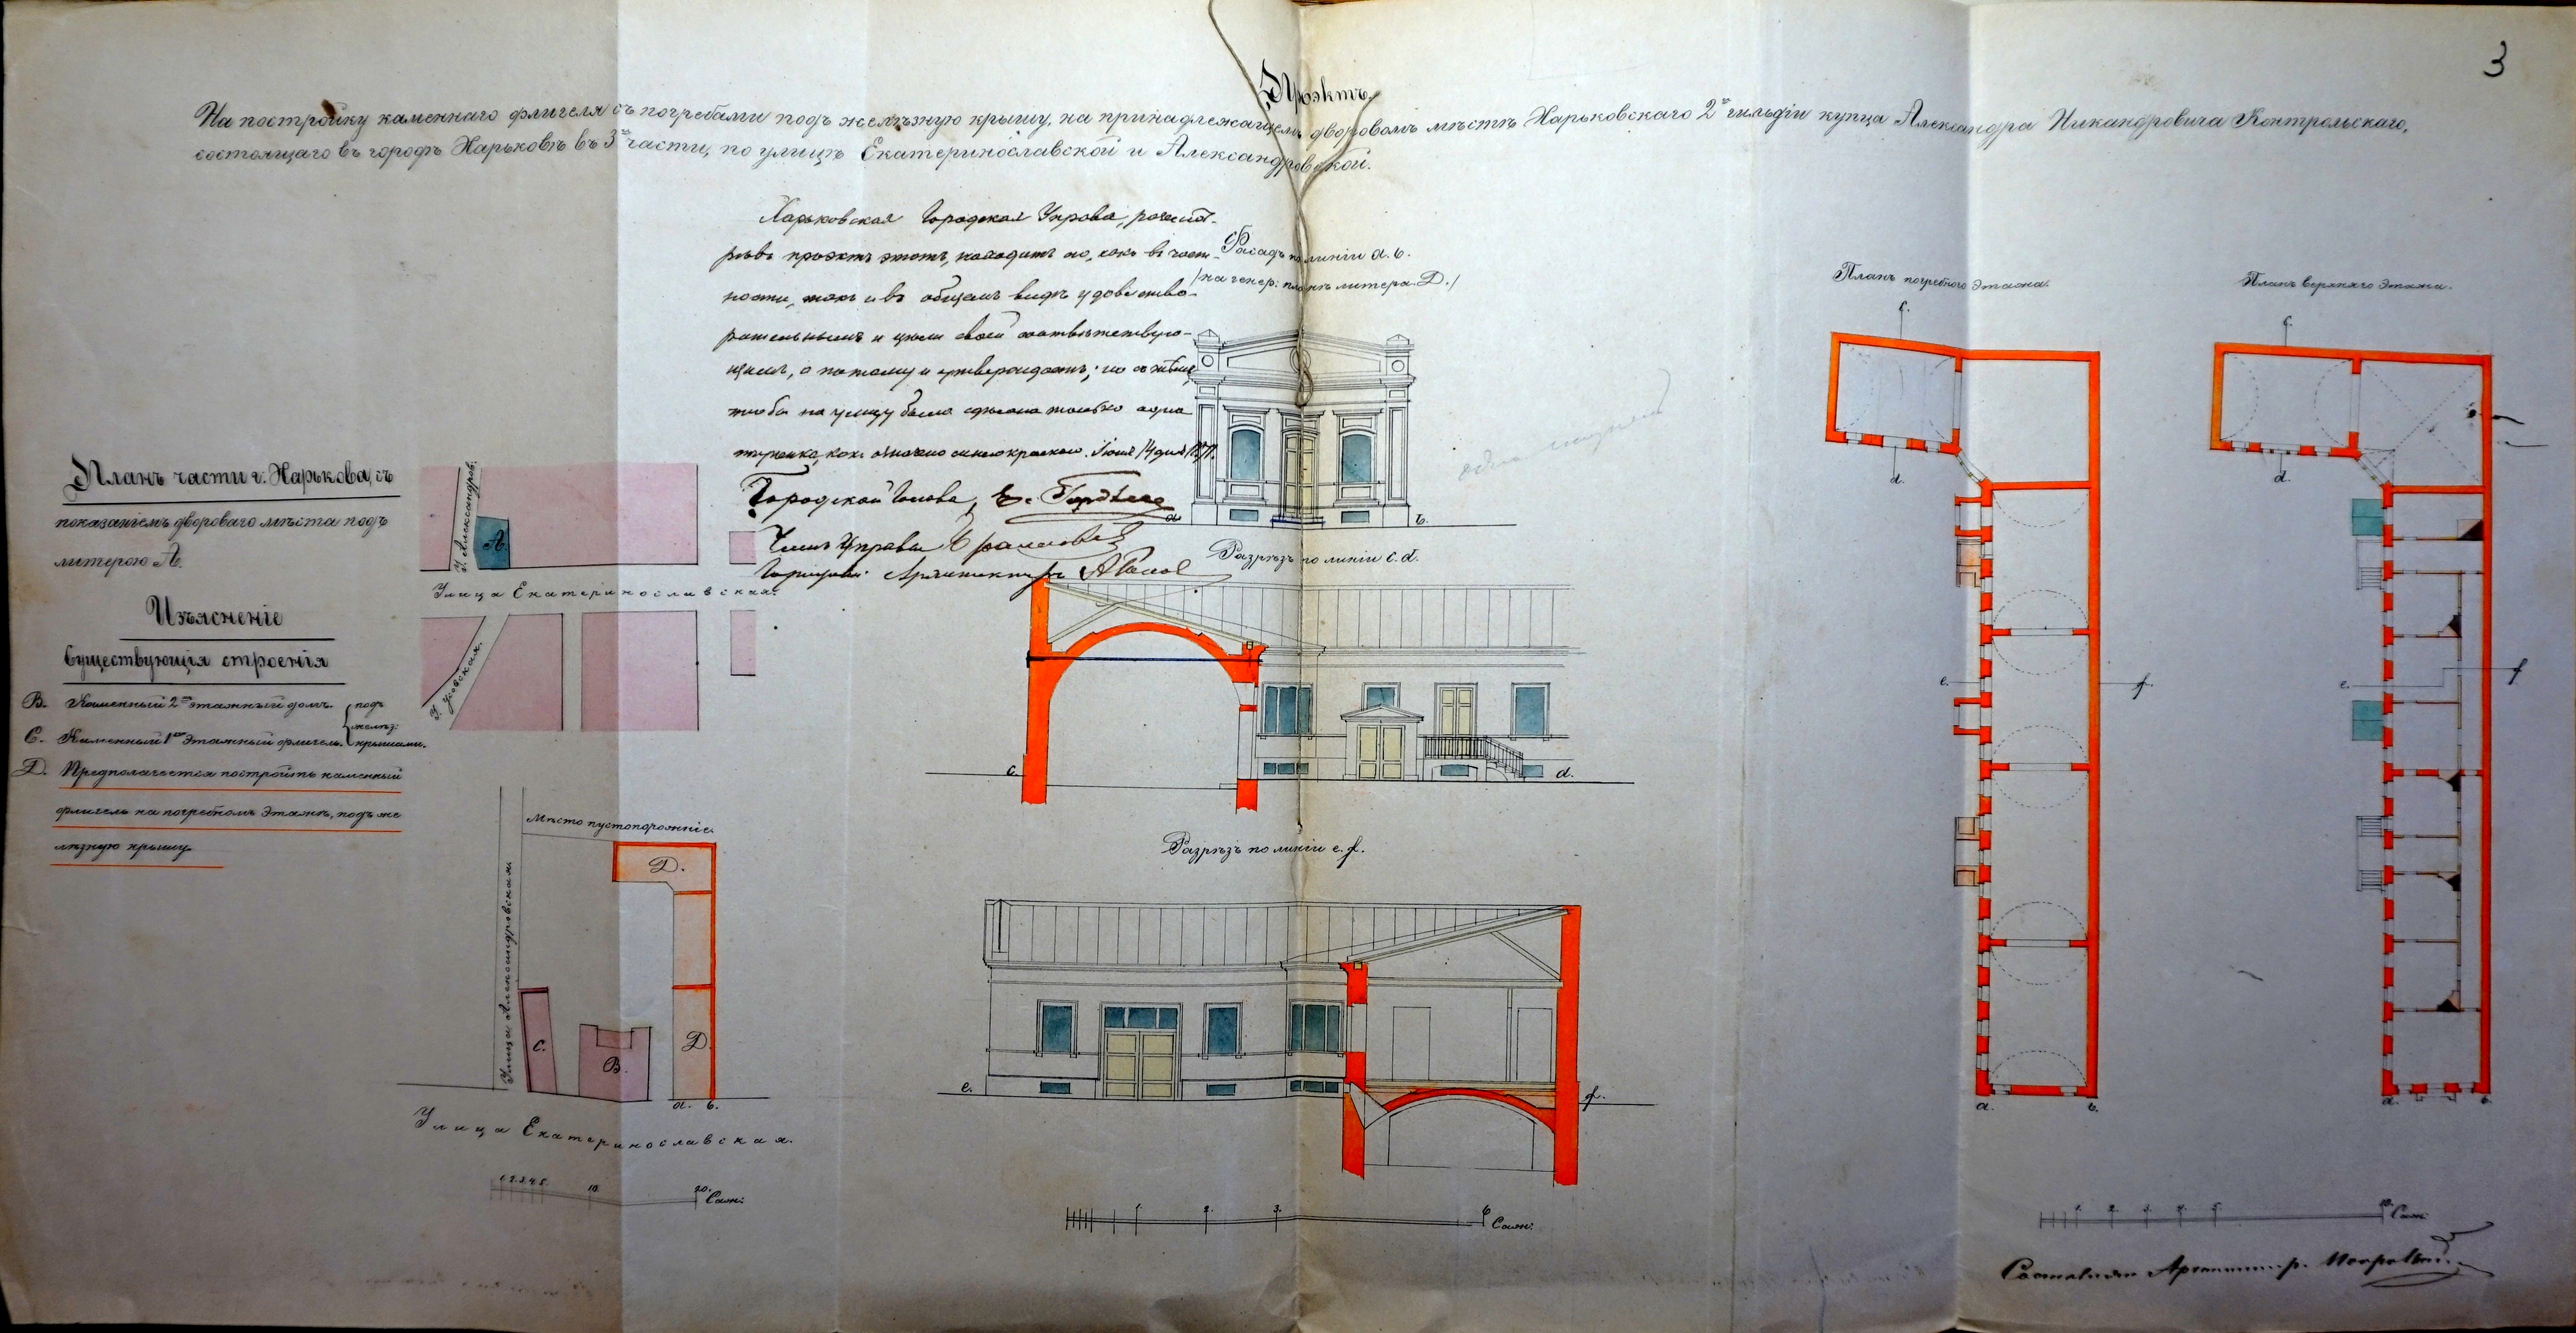 3
Проэктъ
На постройку каменнаго флигеля съ погребами подъ желѣзную крышу, на принадлежащемъ дворовомъ мѣстѣ Харьковскаго 2й гильдіи купца Александра Никандровича Контрольскаго,
состоящаго въ городѣ Харьковѣ въ 3й части, по улицѣ Екатеринославской и Александровской.
Харьковская Городская Управа, разсмот-
рѣвъ проэктъ этотъ, находитъ его, какъ въ част-
ности, такъ и въ общемъ видѣ удовлетво-
рительнымъ и цѣли своей соотвѣтствую-
щимъ, а потому и утверждаетъ; но съ тѣмъ
чтобы на улицу была сдѣлана только одна
ступенька, какъ означено синею краскою. Іюня 14 дня
Городской Голова, Е. Гордѣенко
Членъ Управы
Городской Архитекторъ
Фасадъ по линіи a. b.
/на генер: планѣ литера Д./
a.
b.
Разрѣзъ по линіи c. d.
c.
d.
Разрѣзъ по линіи e. f.
e.
f.
1.
2.
3.
6
Саж:
Планъ части г. Харькова, съ
показаніемъ двороваго мѣста подъ
литерою А.
Изъясненіе
Существующія строенія
В. Каменный 2хъ этажный домъ.
С. Каменный 1но этажный флигель.
подъ
желѣз:
крышами.
Д. Предполагается построить каменный
флигель на погребномъ этажѣ, подъ же
лѣзную крышу.
У. Александров:
А.
Улица Екатеринославская.
Мѣсто пустопорожніе.
Улица Александровская.
Д.
С.
В.
Д.
a. b.
Улица Екатеринославская.
1. 2. 3. 4. 5.
10.
20.
Саж:
Планъ погребного этажа.
c.
d.
e.
f.
a.
b.
Планъ верхняго этажа.
c.
d.
e.
f
a.
b.
1.
2.
3.
4.
5.
10.
Саж:
Составилъ Архитекторъ